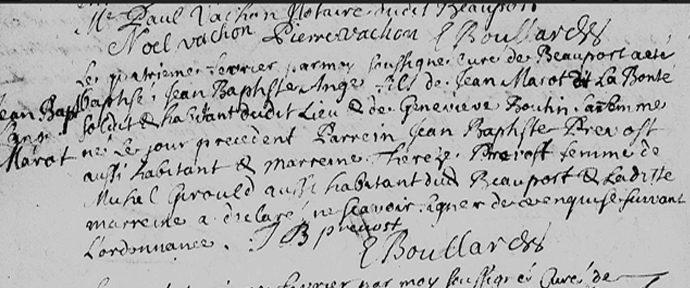 Me. Paul Vachon Notaire dudit Beauport
Noel vachon Pierre vachon E Boullard
Le quatrieme fevrier par moy soussigné Curé de Beauport a été
Jean Bapt baptisé Jean Baptiste Ange fils de Jean Marot dit La Bonté
Ange soldat & habitant dudit Lieu & de Genevieve Boutin sa femme
Marot né le jour precedent Parrein Jean Baptiste Prevost
aussi habitant & marreine Thereze Prevost femme de
Michel Girould aussi habitant dud Beauport & Laditte
marreine a declaré ne scavoir signer de ce enquise suivant
L'ordonnance. J B prevost
E Boullard
fevrier par moy soussigné Curé de